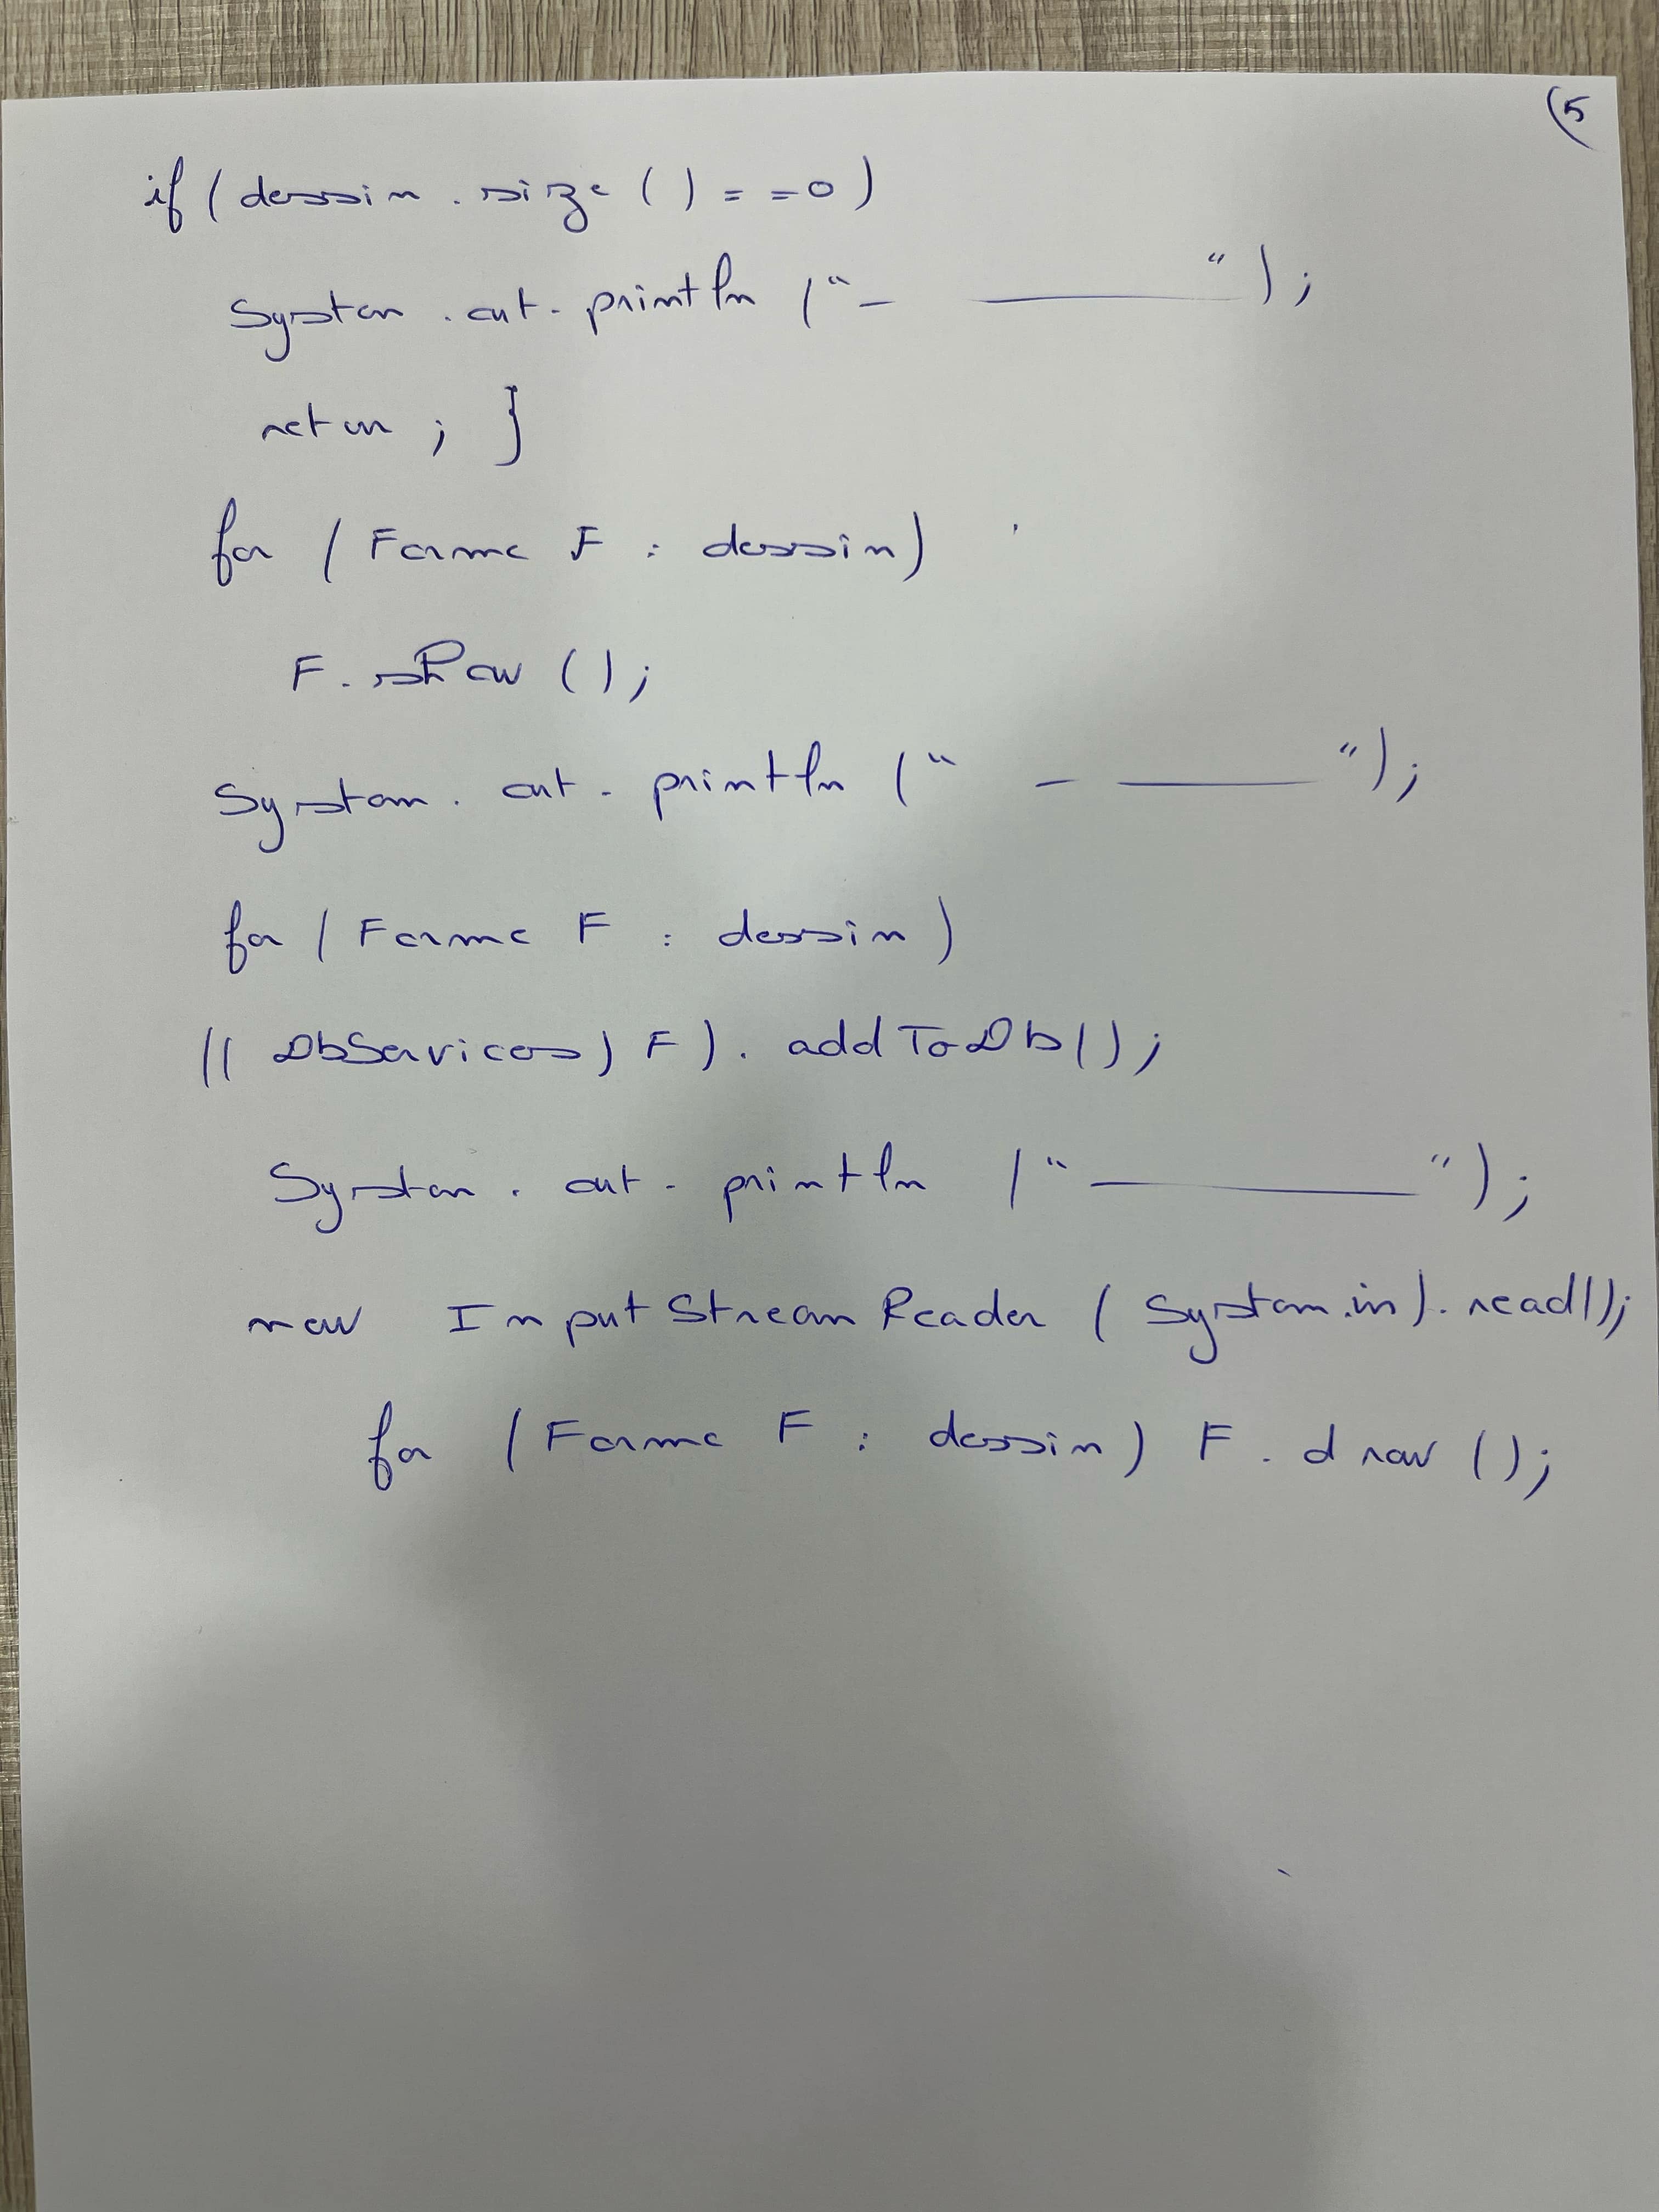 (5
if (dessin.size() == 0)
System.out.println("- ———— ");
return; }
for (Forme F : dessin)
F.show();
System.out.println(" - ———— ");
for (Forme F : dessin)
((DbServices) F).addToDb();
System.out.println("————");
new InputStreamReader(System.in).read();
for (Forme F : dessin) F.draw();